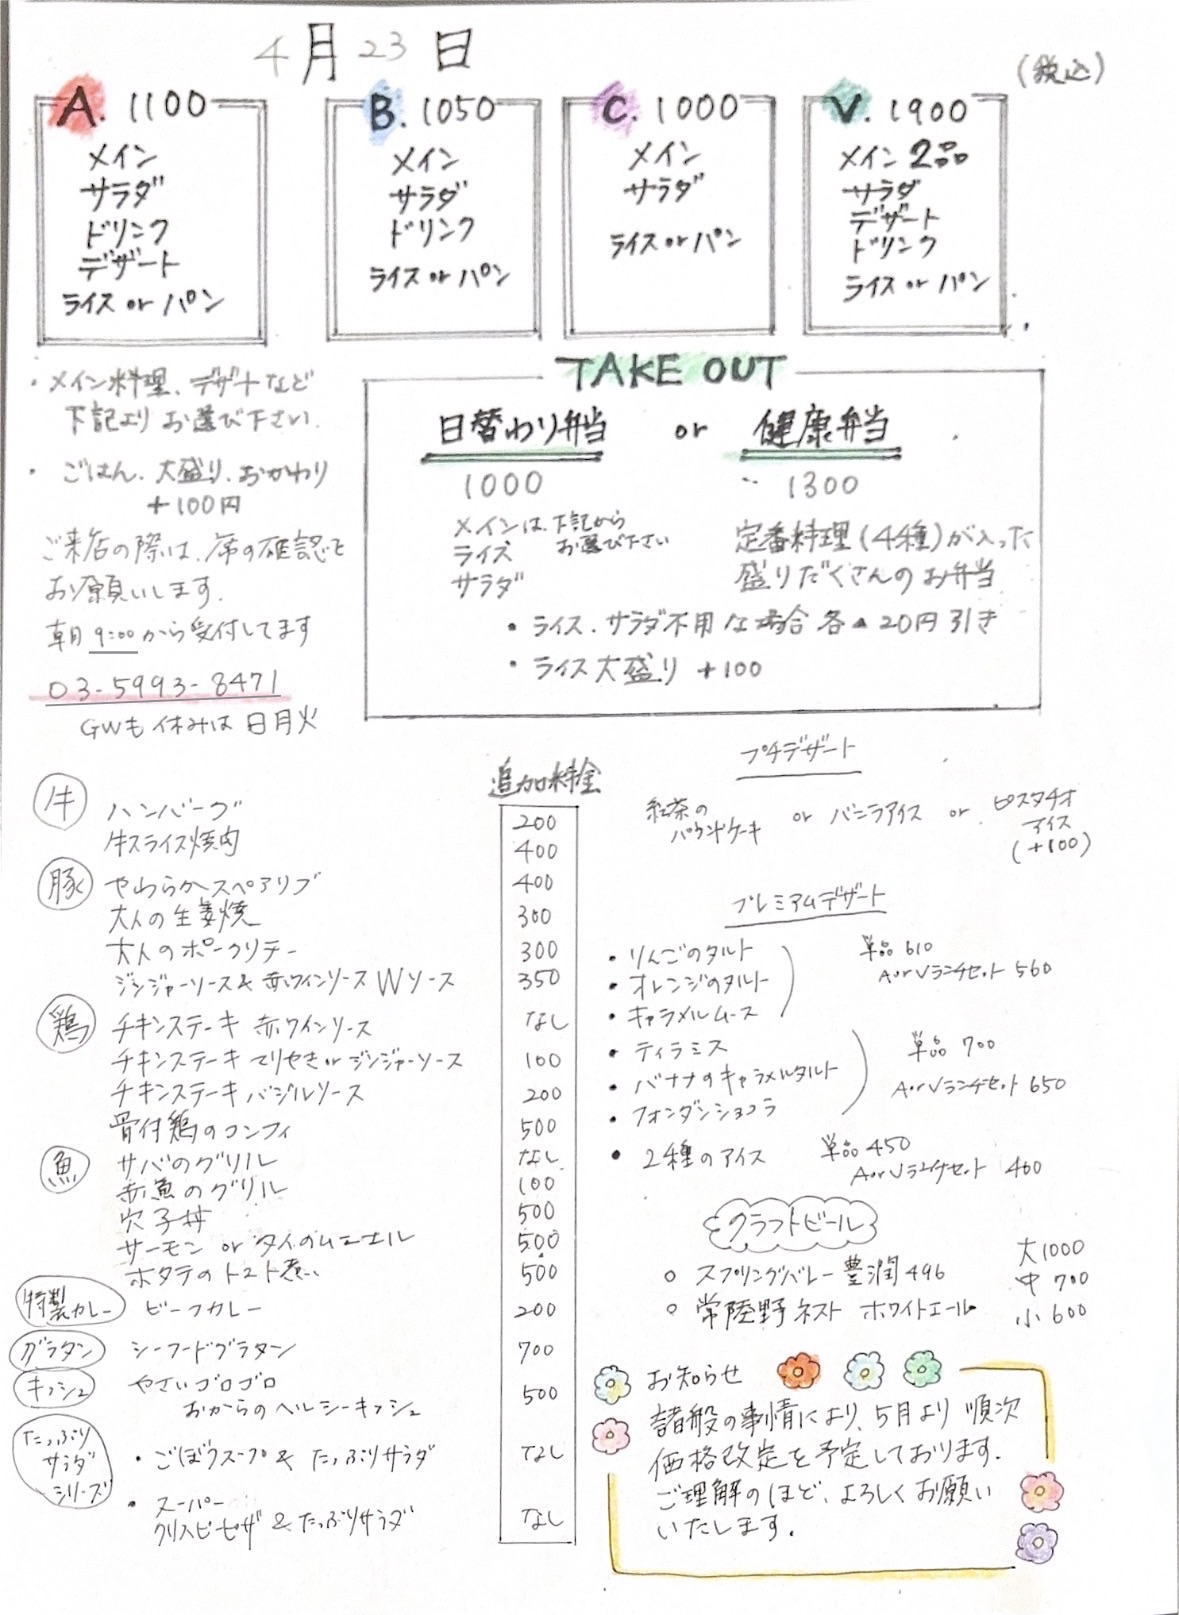 4月23日
(税込)
A. 1100
メイン
サラダ
ドリンク
デザート
ライス or パン
B. 1050
メイン
サラダ
ドリンク
ライス or パン
C. 1000
メイン
サラダ
ライス or パン
V. 1900
メイン 2品
サラダ
デザート
ドリンク
ライス or パン
・メイン料理、デザートなど
下記より お選び下さい.
・ごはん、大盛り、おかわり
+100円
ご来店の際は、席の確認を
お願いします.
朝 9:00から受付してます
03-5993-8471
GWも休みは 日月火
TAKE OUT
日替わり弁当 or 健康弁当
1000
メインは、下記から
お選び下さい
ライス
サラダ
1300
定番料理(4種)が入った
盛りだくさんのお弁当
・ライス、サラダ不用な場合 各▲20円引き
・ライス大盛り +100
追加料金
牛 ハンバーグ 200
牛スライス焼肉 400
豚 やわらかスペアリブ 400
大人の生姜焼 300
大人のポークソテー 300
ジンジャーソース&赤ワインソース Wソース 350
鶏 チキンステーキ 赤ワインソース なし
チキンステーキ てりやき or ジンジャーソース 100
チキンステーキ バジルソース 200
骨付鶏のコンフィ 500
魚 サバのグリル なし
赤魚のグリル 100
穴子丼 500
サーモン or タイのムニエル 500
ホタテのトマト煮 500
特製カレー ビーフカレー 200
グラタン シーフードグラタン 700
キッシュ やさいゴロゴロ
おからのヘルシーキッシュ 500
たっぷり
サラダ
シリーズ
・ごぼうスープ & たっぷりサラダ なし
・スーパー
クリスピーピザ & たっぷりサラダ なし
プチデザート
紅茶の
パウンドケーキ or バニラアイス or ピスタチオ
アイス
(+100)
プレミアムデザート
・りんごのタルト
・オレンジのタルト
・キャラメルムース
単品 610
A or V ランチセット 560
・ティラミス
・バナナのキャラメルタルト
・フォンダンショコラ
単品 700
A or V ランチセット 650
・2種のアイス 単品 450
A or V ランチセット 400
クラフトビール
○ スプリングバレー 豊潤496
○ 常陸野ネスト ホワイトエール
大1000
中 700
小 600
お知らせ
諸般の事情により、5月より 順次
価格改定を予定しております.
ご理解のほど、よろしくお願い
いたします.